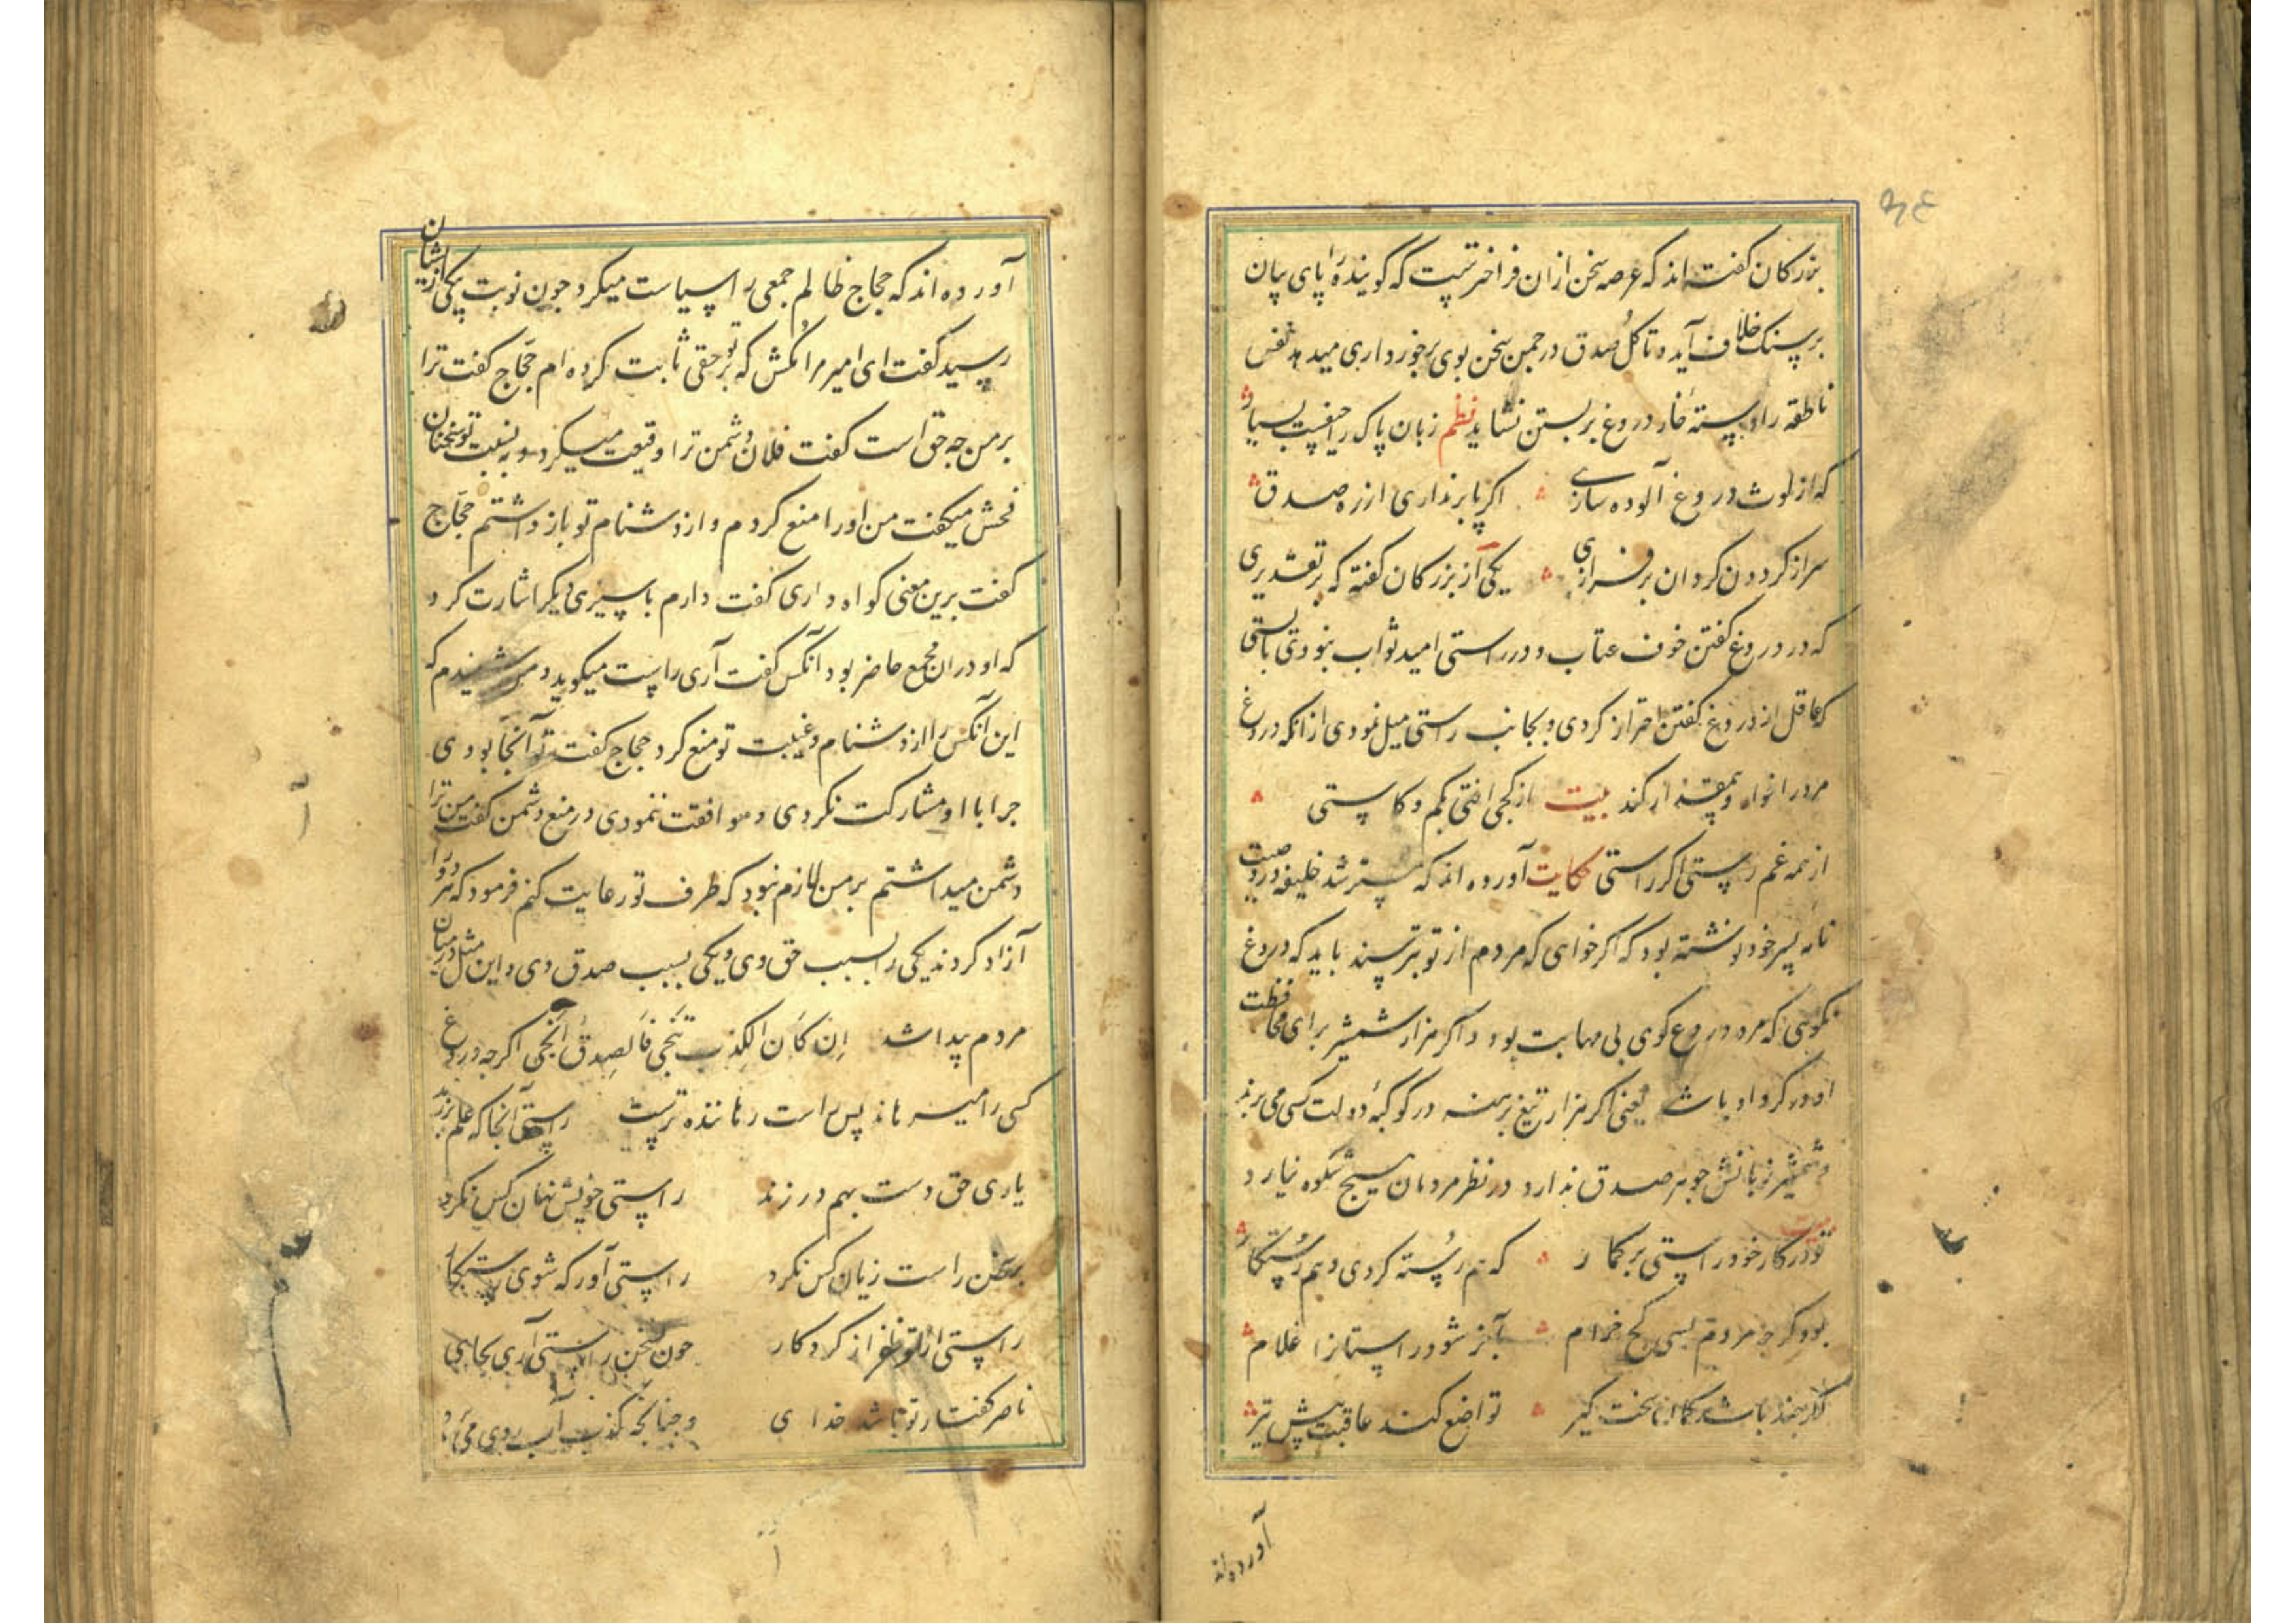 بزرکان کفته اند که عرصه سخن ازان فراخترست که کوینده را پای بیان
بر سنک خلاف آید و تا کل صدق در جمن سخن بوی برخورداری میدهد نفس
ناطقه را دسته خار دروغ بر بستن نشاید نظم زبان پاک را حیفست بسیار
که از لوث دروغ آلوده سازی اکر پا بر نداری از ره صدق
سر از کردون کردان بر فرازی یکی از بزرکان کفته که بر تقدیری
که در دروغ کفتن خوف عتاب و در راستی امید ثواب نبودی بایستی
که عاقل از دروغ کفتن احتراز کردی و بجانب راستی میل نمودی از انکه دروغ
مرد را خوار و بیمقدار کند بیت از کجی افتی بکم و کاستی
از همه غم رستی اکر راستی حکایت آورده اند که مسترشد خلیفه در وصیت
نامه پسر خود نوشته بود که اکر خواهی که مردم از تو بترسند باید که دروغ
نکویی که مرد دروغ کوی بی مهابت بود و اکر هزار شمشیر برای محافظت
او در کرد او باشد یعنی اکر هزار تیغ برهنه در کوکبه دولت کسی می برند
و شمشیر زبانش جوهر صدق ندارد در نظر مردمان هیچ شکوه نیارد
تو در کار خود راستی بر کمار که هم رسته کردی و هم رستکار
بود کرجه مردم بسی کج خرام بآخر شود راستانرا غلام
تواضع کند عاقبت پیش تیر
آورده اند
آورده اند که حجاج ظالم جمعی را سیاست میکرد جون نوبت بیکی ازیشان
رسید کفت ای امیر مرا مکش که بر تو حقی ثابت کرده ام حجاج کفت ترا
بر من جه حق است کفت فلان دشمن ترا وقیعت میکرد و به نسبت تو سخنان
فحش میکفت من او را منع کردم و از دشنام تو باز داشتم حجاج
کفت برین معنی کواه داری کفت دارم باسیری دیکر اشارت کرد
که او دران مجمع حاضر بود آنکس کفت آری راست میکوید و من شنیدم که
این آنکس را از دشنام و غیبت تو منع کرد حجاج کفت تو آنجا بودی
جرا با او مشارکت نکردی و موافقت ننمودی در منع دشمن کفت من ترا
دشمن میداشتم بر من لازم نبود که طرف تو رعایت کنم فرمود که هر دو را
آزاد کردند یکی را بسبب حق وی و یکی بسبب صدق وی و این مثل در میان
مردم پیدا شد اِن کَان الکِذب تُنجی فَالصِدقُ اَنجی اکرجه دروغ
کسی را میرهاند پس راست رهاننده ترست راستی آنجا که علم بر زند
یاری حق دست بهم در زند راستی خویش نهان کس نکرد
بر سخن راست زیان کس نکرد راستی آور که شوی رستکار
راستی از تو ظفر از کردکار جون سخن راستی آری بجای
ناصر کفتار تو باشد خدای و جنانکه کذب آب روی